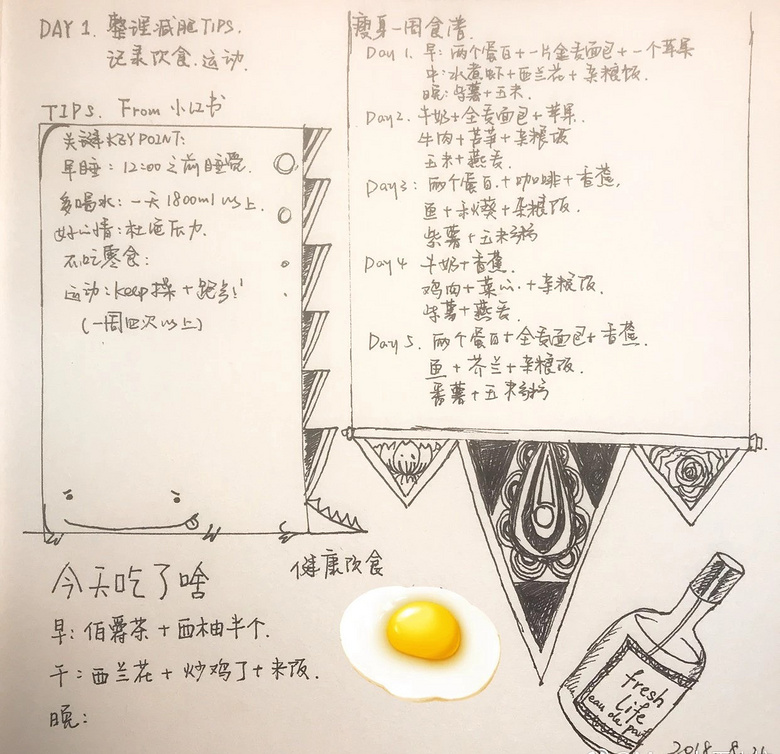 DAY 1. 整理减脂TIPS.
记录饮食.运动.
TIPS. From 小红书
关键KEY POINT:
早睡:12:00之前睡觉.
多喝水:一天1800ml以上.
好心情:杜绝压力.
不吃零食:
运动:keep操+跑步!
(一周四次以上)
瘦身一周食谱.
Day 1. 早:两个蛋白+一片全麦面包+一个苹果
中:水煮虾+西兰花+杂粮饭.
晚:紫薯+玉米.
Day2. 牛奶+全麦面包+苹果.
牛肉+芦笋+杂粮饭
玉米+燕麦.
Day3: 两个蛋白.+咖啡+香蕉.
鱼+秋葵+杂粮饭.
紫薯+玉米
Day 4 牛奶+香蕉.
鸡肉+菜心.+杂粮饭.
紫薯+燕麦.
Day 5. 两个蛋白+全麦面包+香蕉.
鱼+芥兰+杂粮饭.
番薯+玉米
健康饮食
今天吃了啥
早:伯爵茶+西柚半个.
午:西兰花+炒鸡丁+米饭.
晚:
fresh
life
eau de
2018.8.